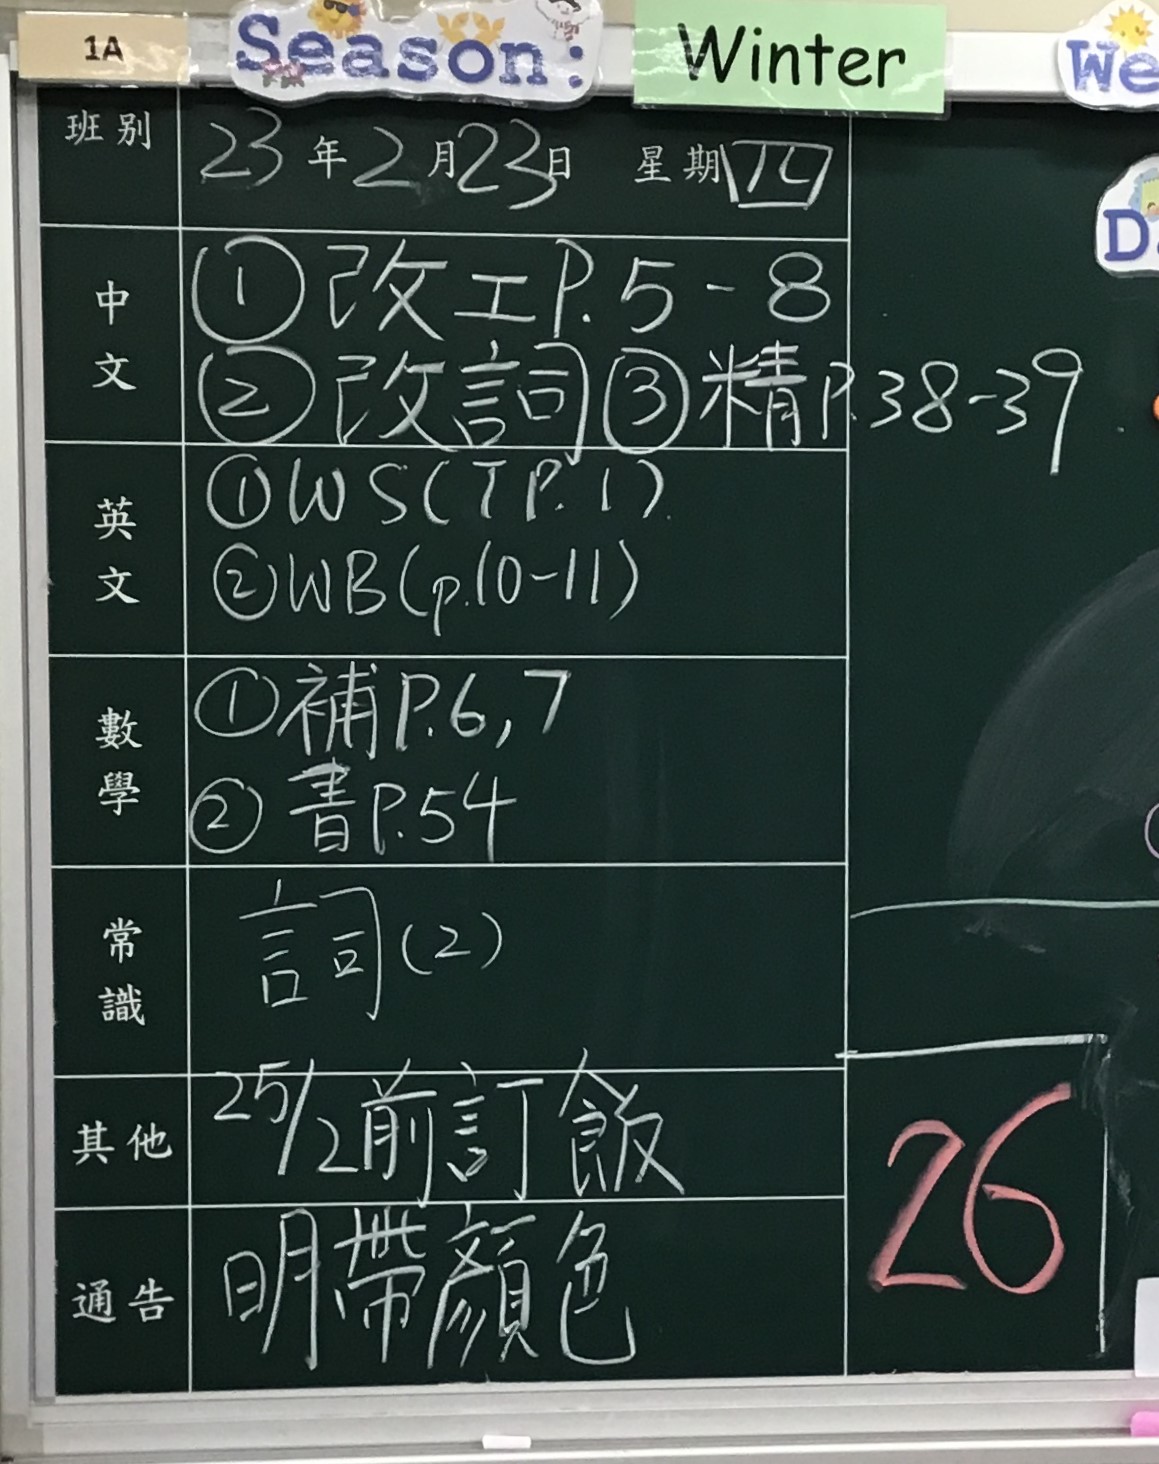 1A Season: Winter We
班別 23年2月23日 星期四
D
中文 ①改工P.5-8
②改詞 ③精P.38-39
英文 ①WS(TP.1)
②WB(p.10-11)
數學 ①補P.6,7
②書P.54
常識 詞(2)
其他 25/2前訂飯
26
通告 明帶顏色